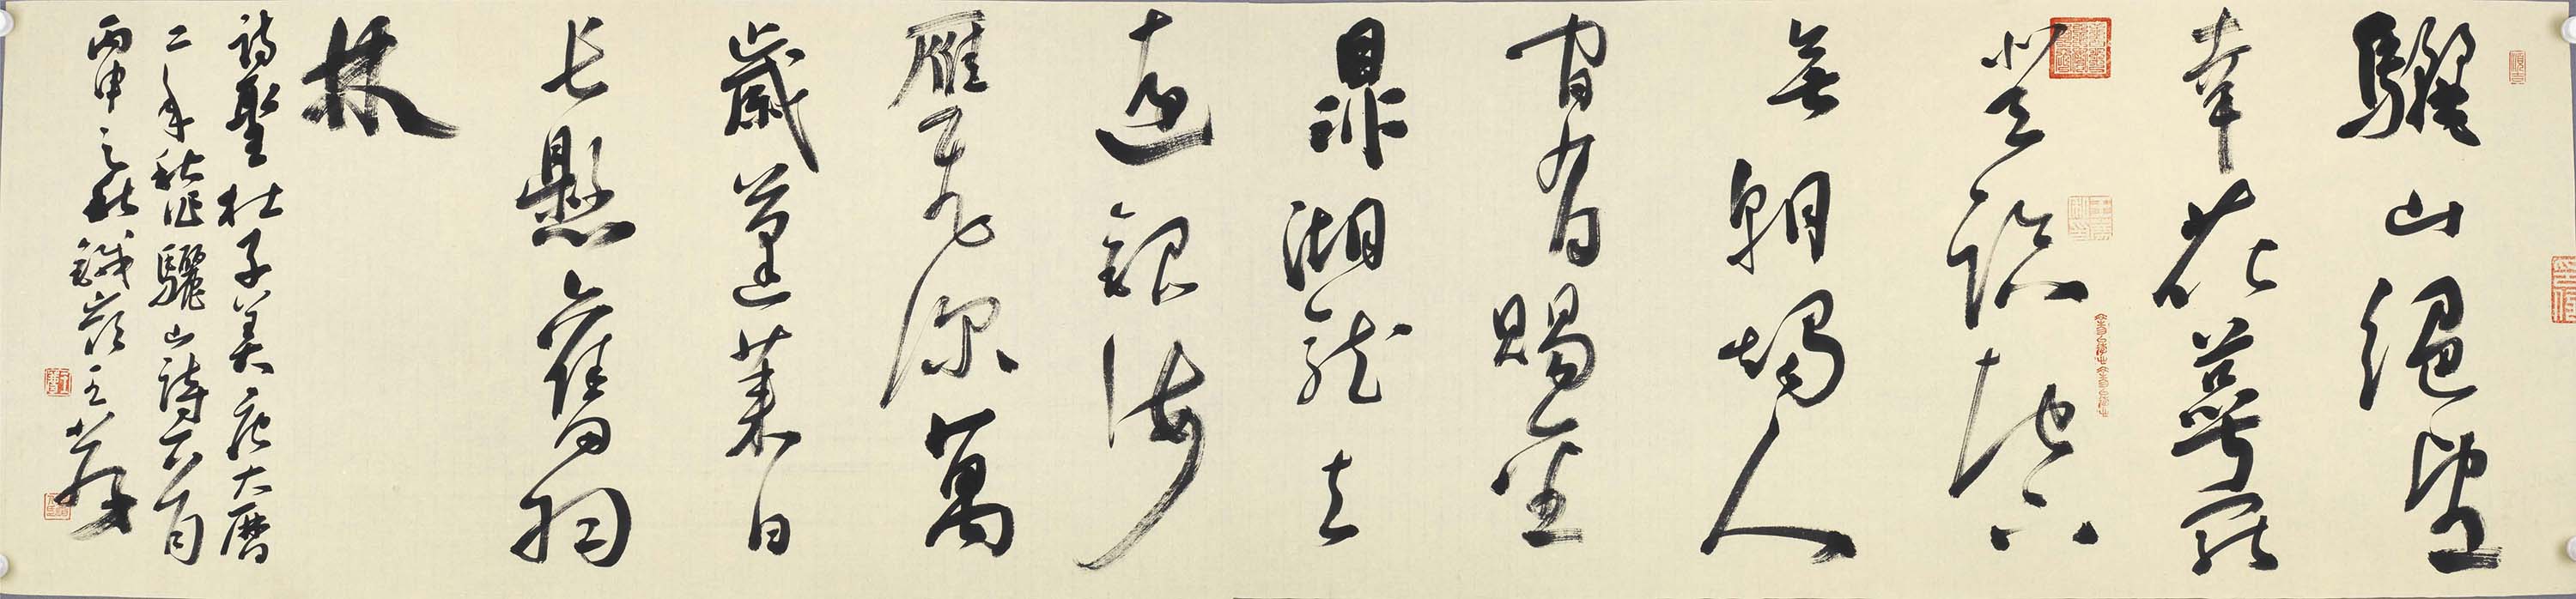 驪山絕望
幸花萼罷
登臨地下
無朝燭人
間有賜金
鼎湖龍去
遠銀海
雁飛深萬
歲蓬萊日
長懸舊羽
林
詩聖杜子美大曆
二年秋作驪山詩
丙申之秋鐵嶺王